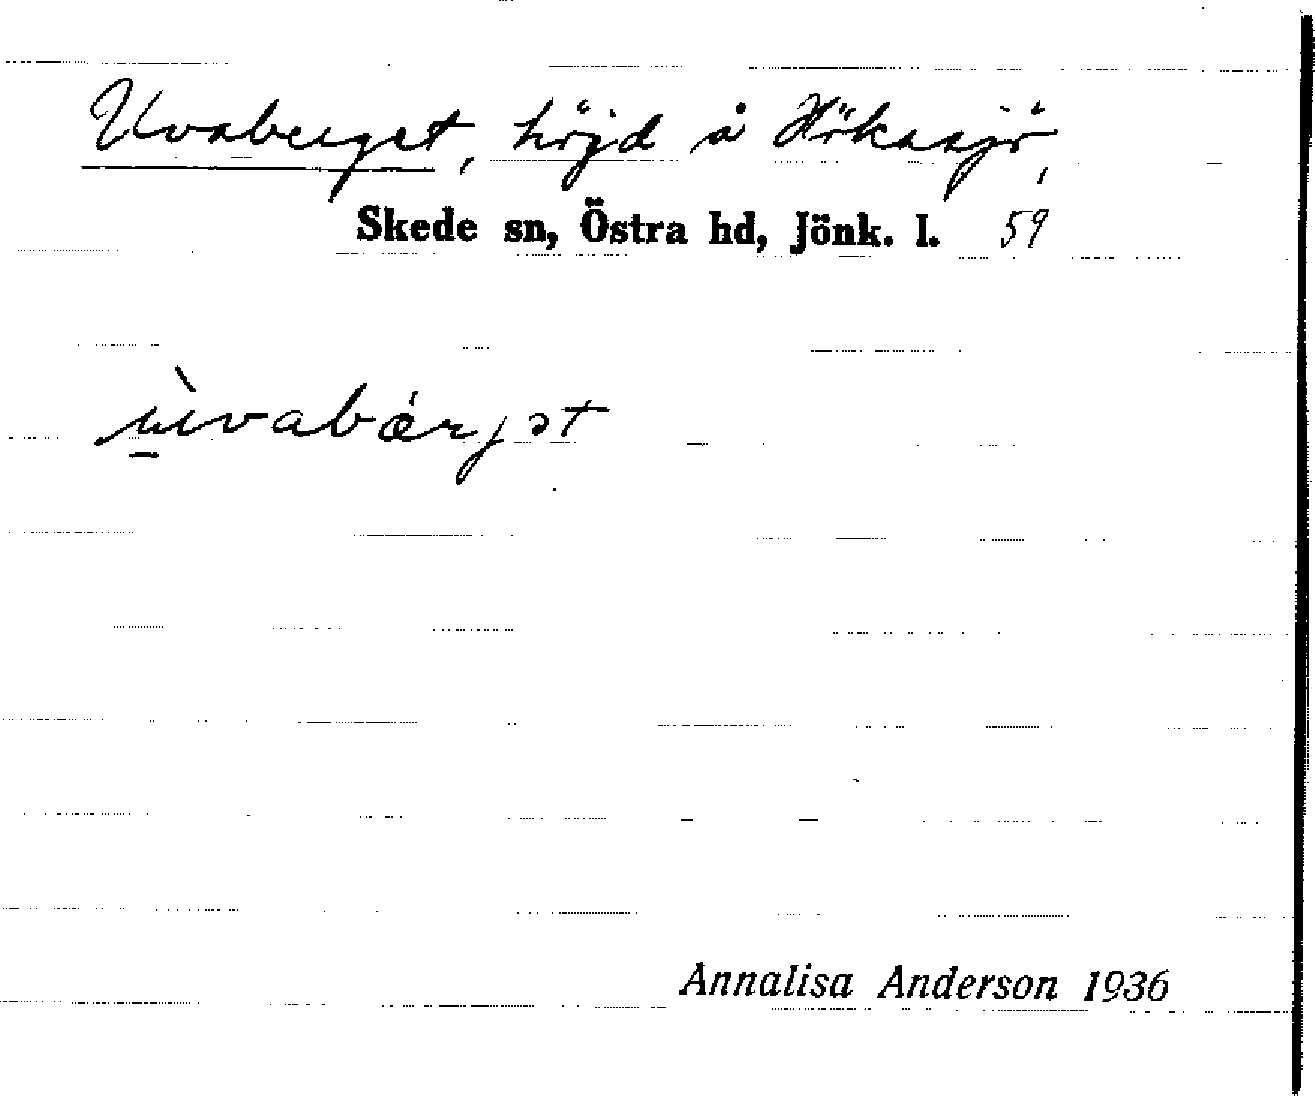 Uvaberget, höjd å Hökasjö,
Skede sn, Östra hd, Jönk. l. 59
ùvabárjət
Annalisa Anderson 1936